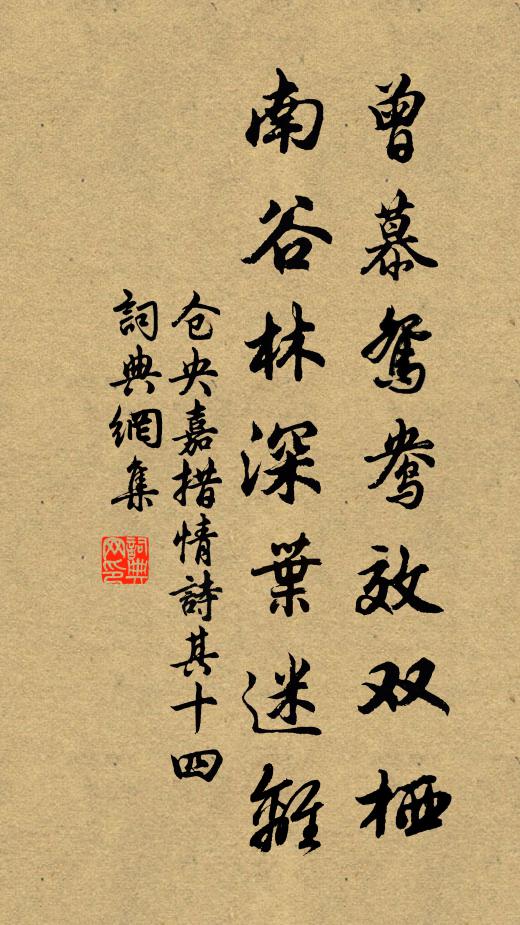 曾慕鴛鴦效双栖
南谷林深葉迷離
仓央嘉措情詩其十四
詞典網集
詞典网印